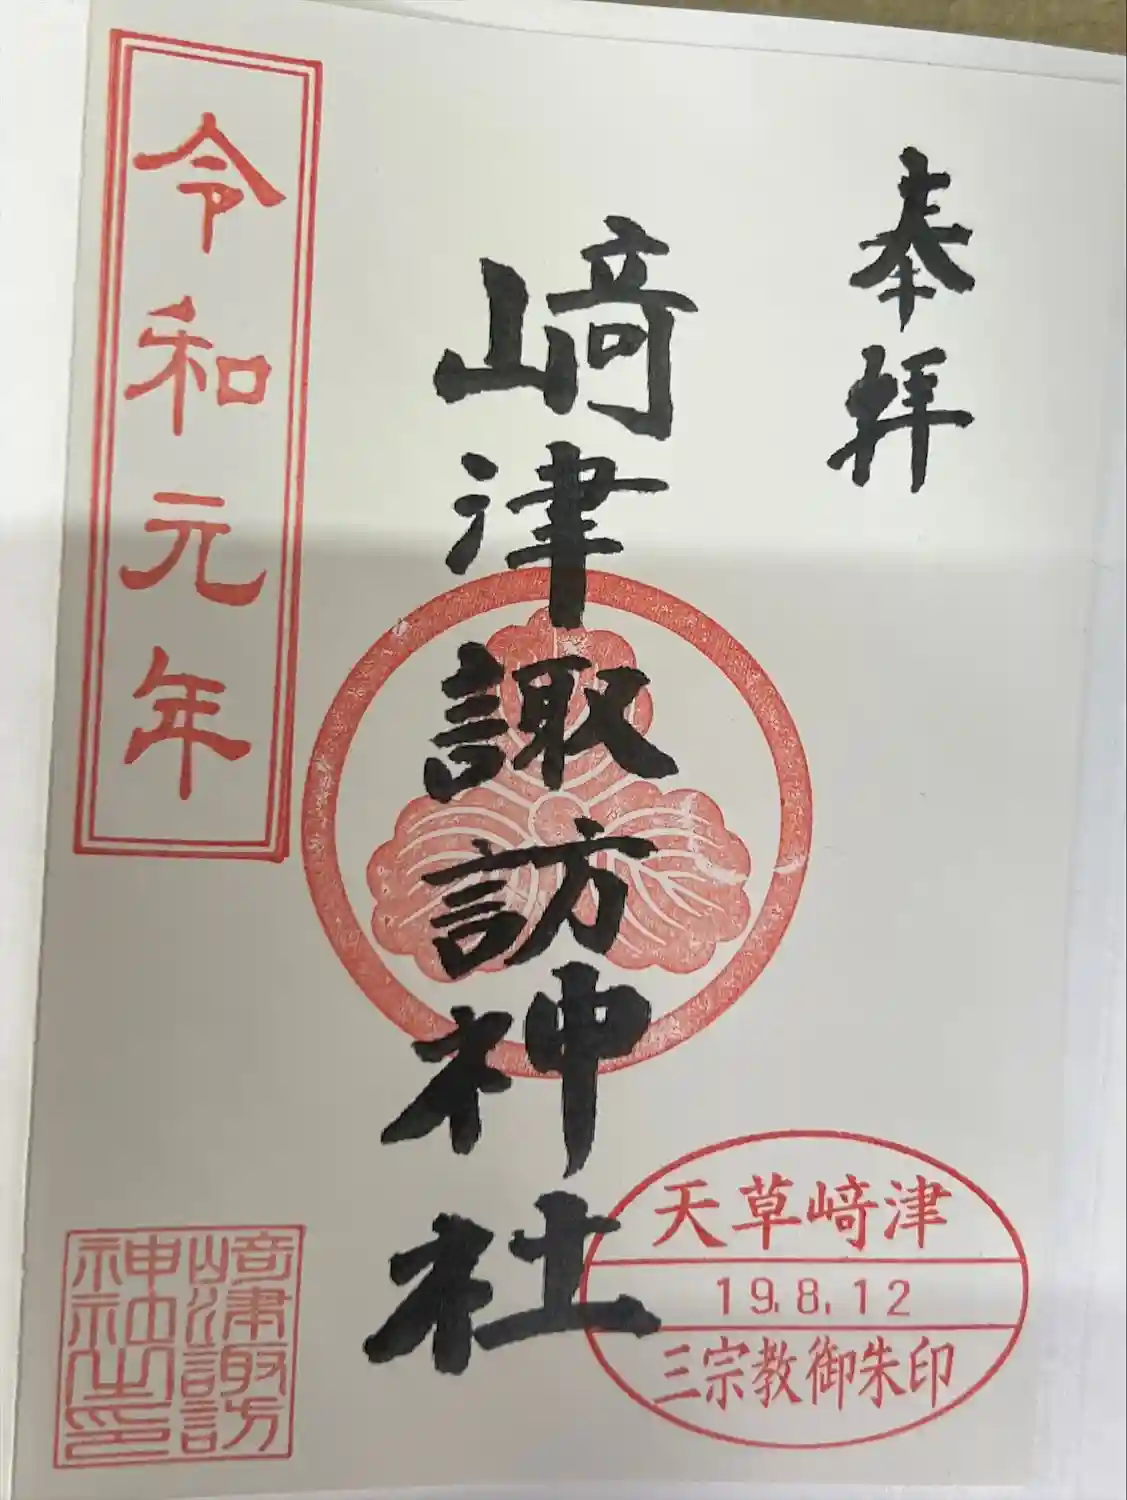 奉拝
﨑津諏訪神社
令和元年
天草﨑津
19.8.12
三宗教御朱印
﨑津諏訪
神社神社之印